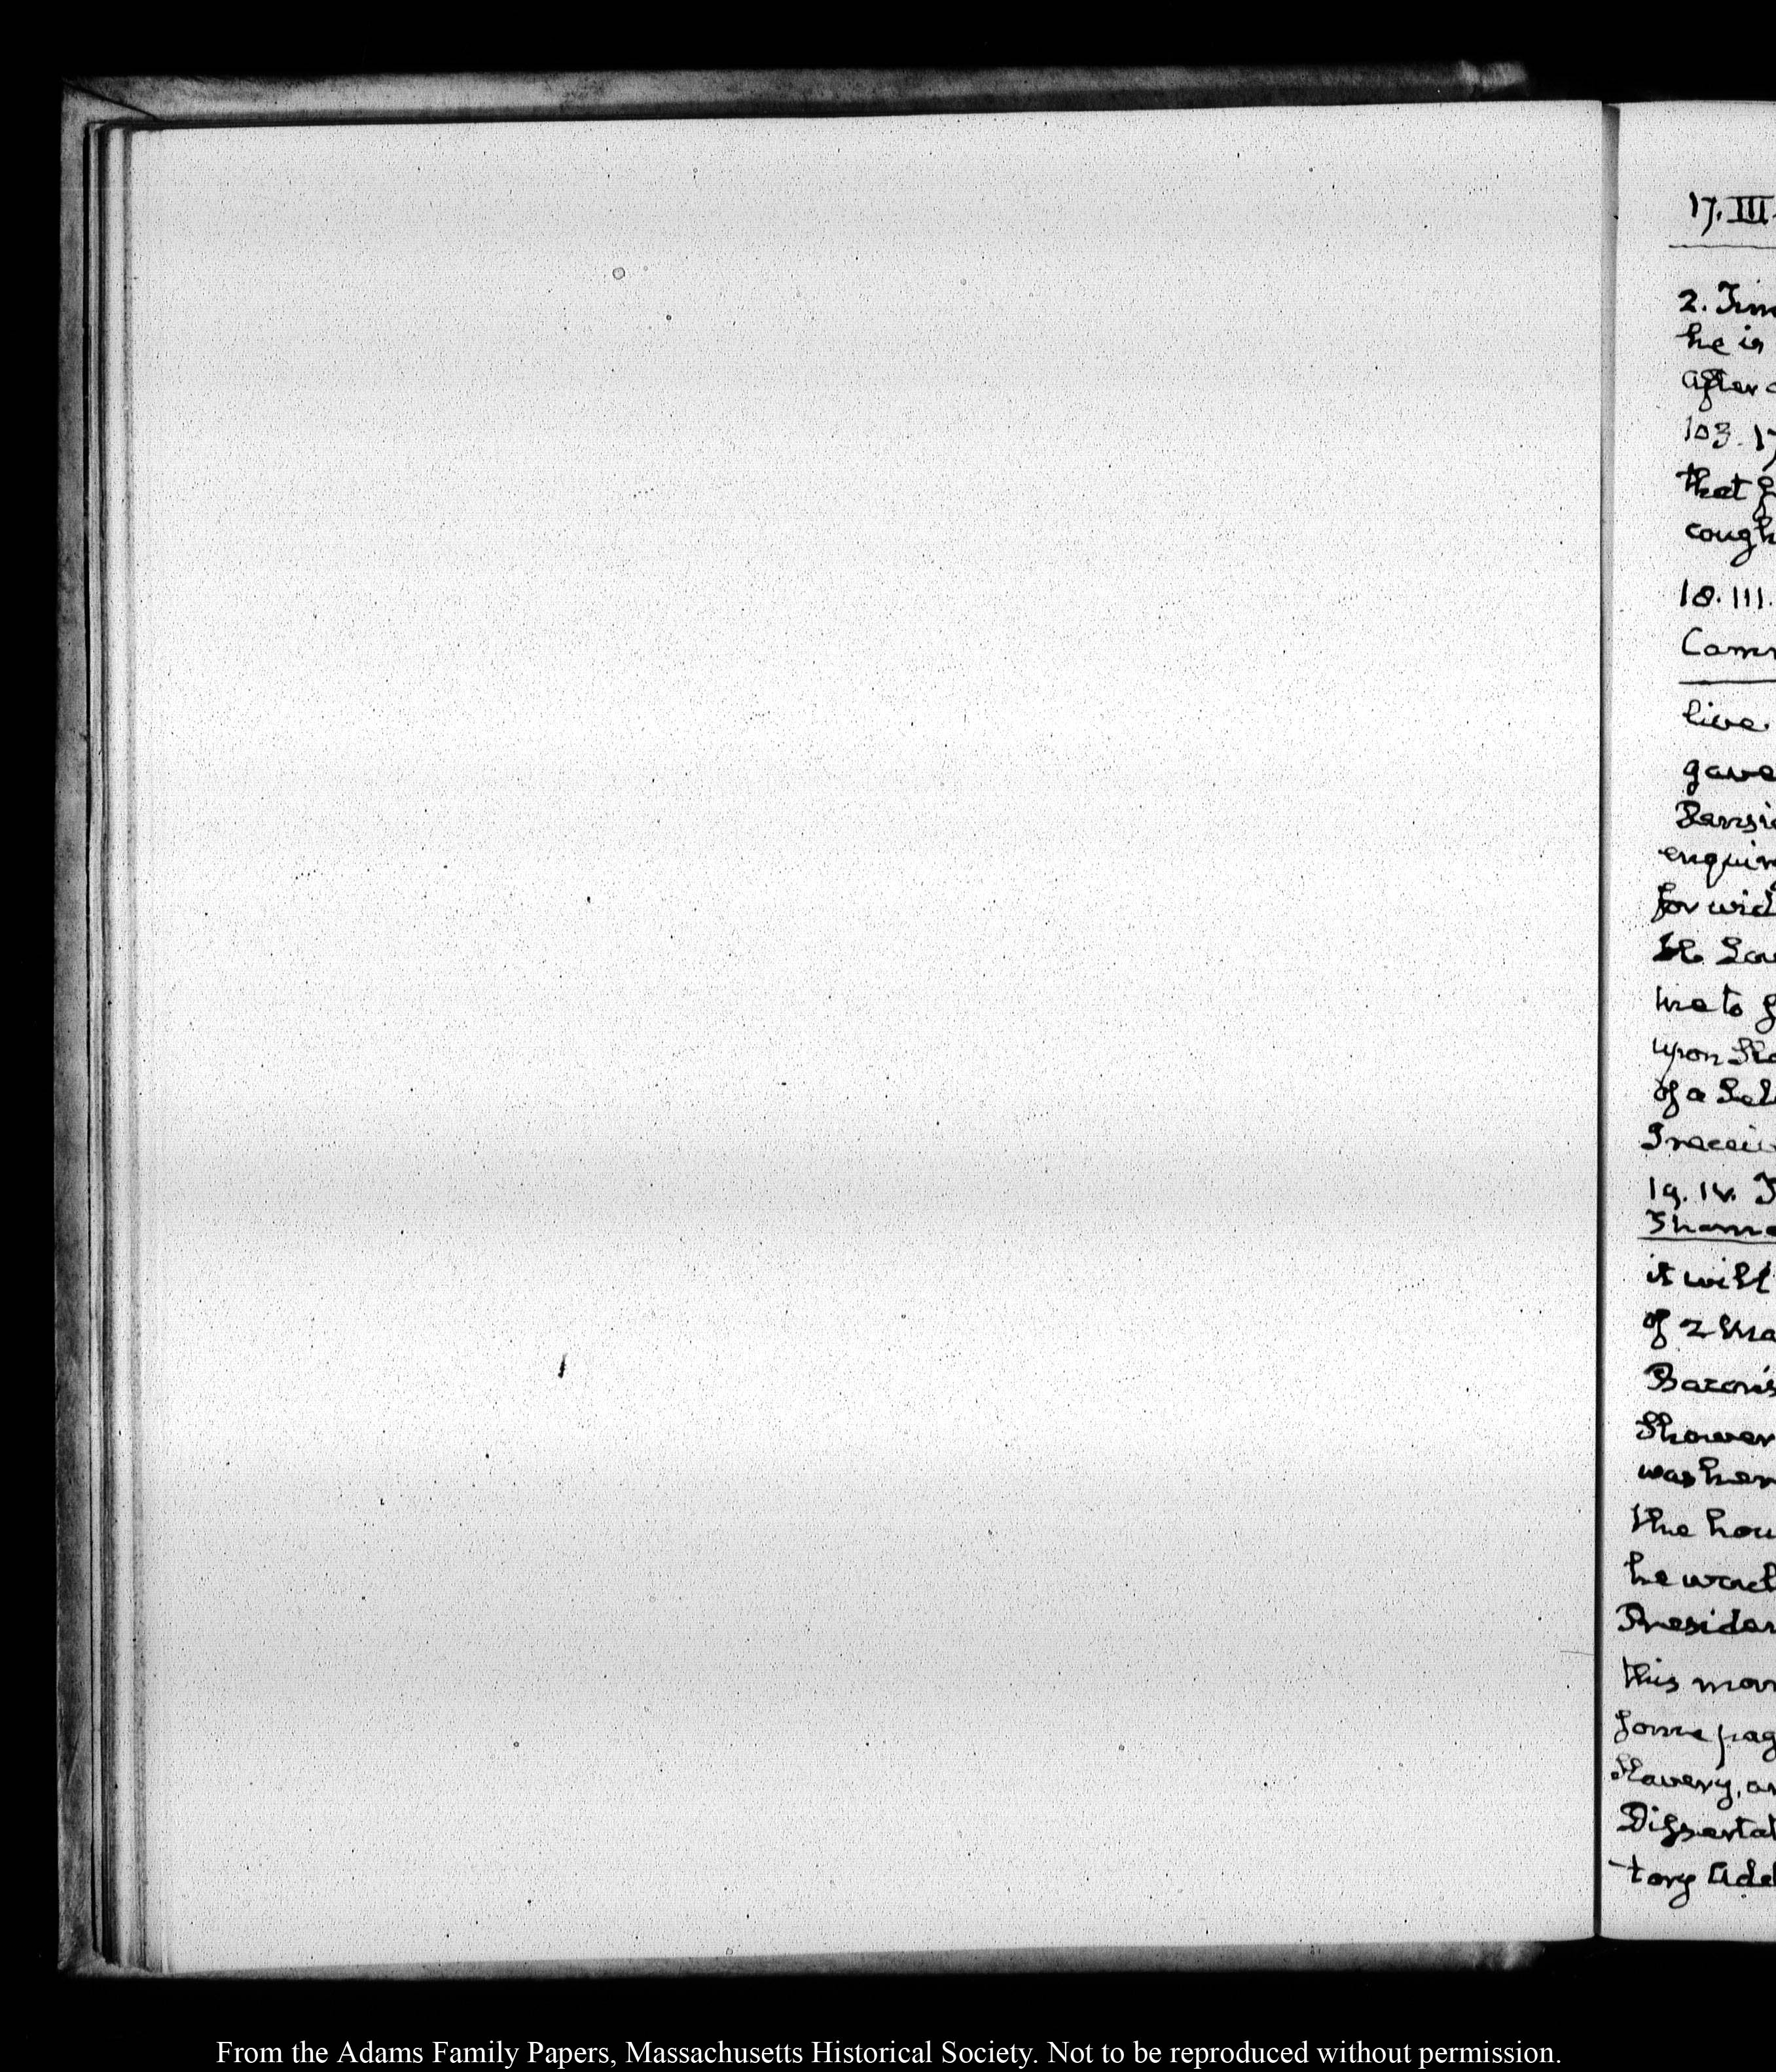 17. III.
2. Tim
he is
after
103. 17
that
cough
18. III.
Com
live
gave
Pensi
enquir
for wid
me to
upon
of a Sel
I recei
19. IV.
it will
of 2
Baron's
Shower
was her
the hou
he was
Presiden
this mor
some pag
Slavery, an
Dissertat
tory Add
From the Adams Family Papers, Massachusetts Historical Society. Not to be reproduced without permission.